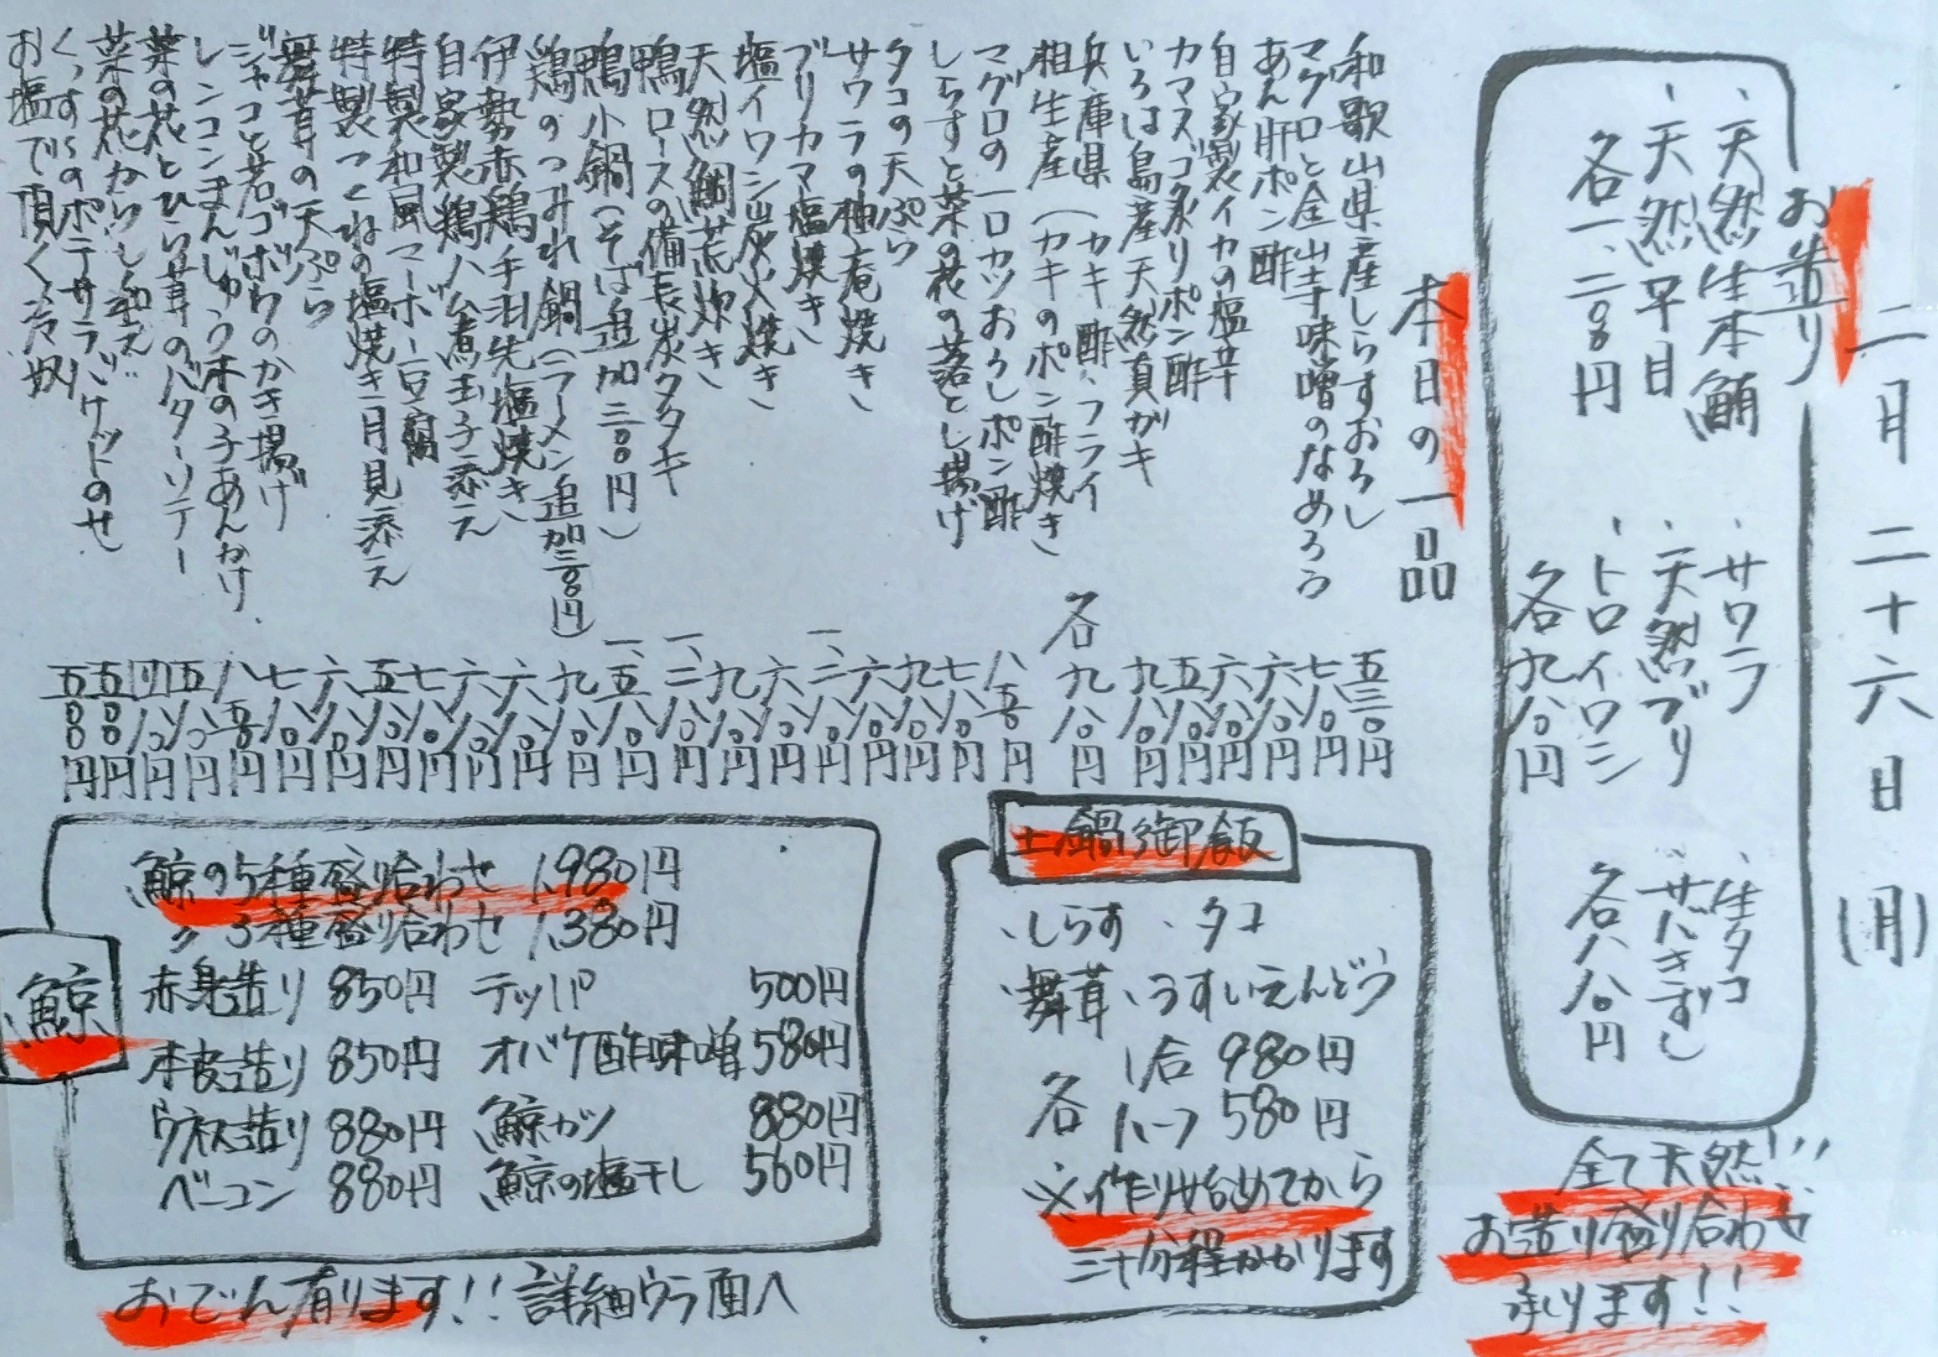 二月二十六日(月)
お造り
、天然生本鮪
、天然平目
各一、二〇〇円
、サワラ
、天然ブリ
、トロイワシ
各九八〇円
、生タコ
、サバきずし
各八八〇円
全て天然!!!
お造り盛り合わせ
承ります!!
本日の一品
和歌山県産しらすおろし 五三〇円
マグロと金山寺味噌のなめろう 七八〇円
あん肝ポン酢 六八〇円
自家製イカの塩辛 六八〇円
カマス子炙りポン酢 五八〇円
いろは島産天然真ガキ 九八〇円
兵庫県(カキ酢、フライ
相生産(カキのポン酢焼き 各九八〇円
マグロの一口カツおろしポン酢 八五〇円
しらすと菜の花の落とし揚げ 七八〇円
タコの天ぷら 九八〇円
サワラの柚庵焼き 六八〇円
ブリカマ塩焼き 一、二八〇円
塩イワシ炭火焼き 六八〇円
天然鯛荒炊き 九八〇円
鴨ロースの備長炭タタキ 一、二八〇円
鴨小鍋(そば追加三〇〇円) 一、五八〇円
鶏のつみれ鍋(ラーメン追加三〇〇円) 九八〇円
伊勢赤鶏手羽先塩焼き 六八〇円
自家製鶏ハム煮玉子添え 六八〇円
特製和風マーボー豆腐 七八〇円
特製つくねの塩焼き月見添え 五八〇円
舞茸の天ぷら 六八〇円
ジャコと若ゴボウのかき揚げ 七八〇円
レンコンまんじゅう木の子あんかけ 八五〇円
菜の花とひら茸のバターソテー 五八〇円
菜の花からし和え 四八〇円
くっすsのポテサラ 五〇〇円
お塩で頂く冷奴 五〇〇円
土鍋御飯
、しらす 、タコ
、舞茸 、うすいえんどう
各 1合 980円
ハーフ 580円
※作り始めてから
三十分程かかります
鯨
鯨の5種盛り合わせ 1,980円
〃 3種盛り合わせ 1,380円
赤身造り 850円 テッパ 500円
本皮造り 850円 オバケ酢味噌 580円
ウネス造り 880円 鯨カツ 880円
ベーコン 880円 鯨の塩干し 560円
おでん有ります!!詳細ウラ面へ